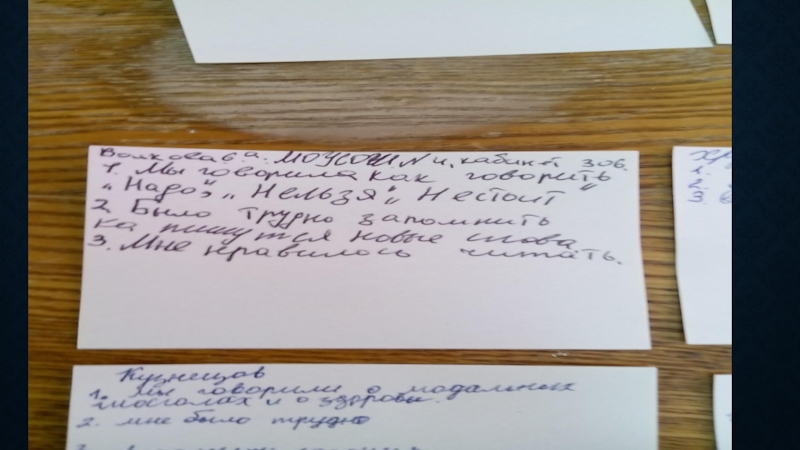 Волкова 6.а. МОУСОШ № 4, кабинет 306.
1. Мы говорила как говорить
„Надо", „Нельзя", „Не стоит"
2 Было трудно запомнить
ка пишутся новые слова
3. Мне нравилось читать.
1.
2.
3.
Кузнецов
1. Мы говорили о модальных
глосголах и о здоровье.
2. мне было трудно